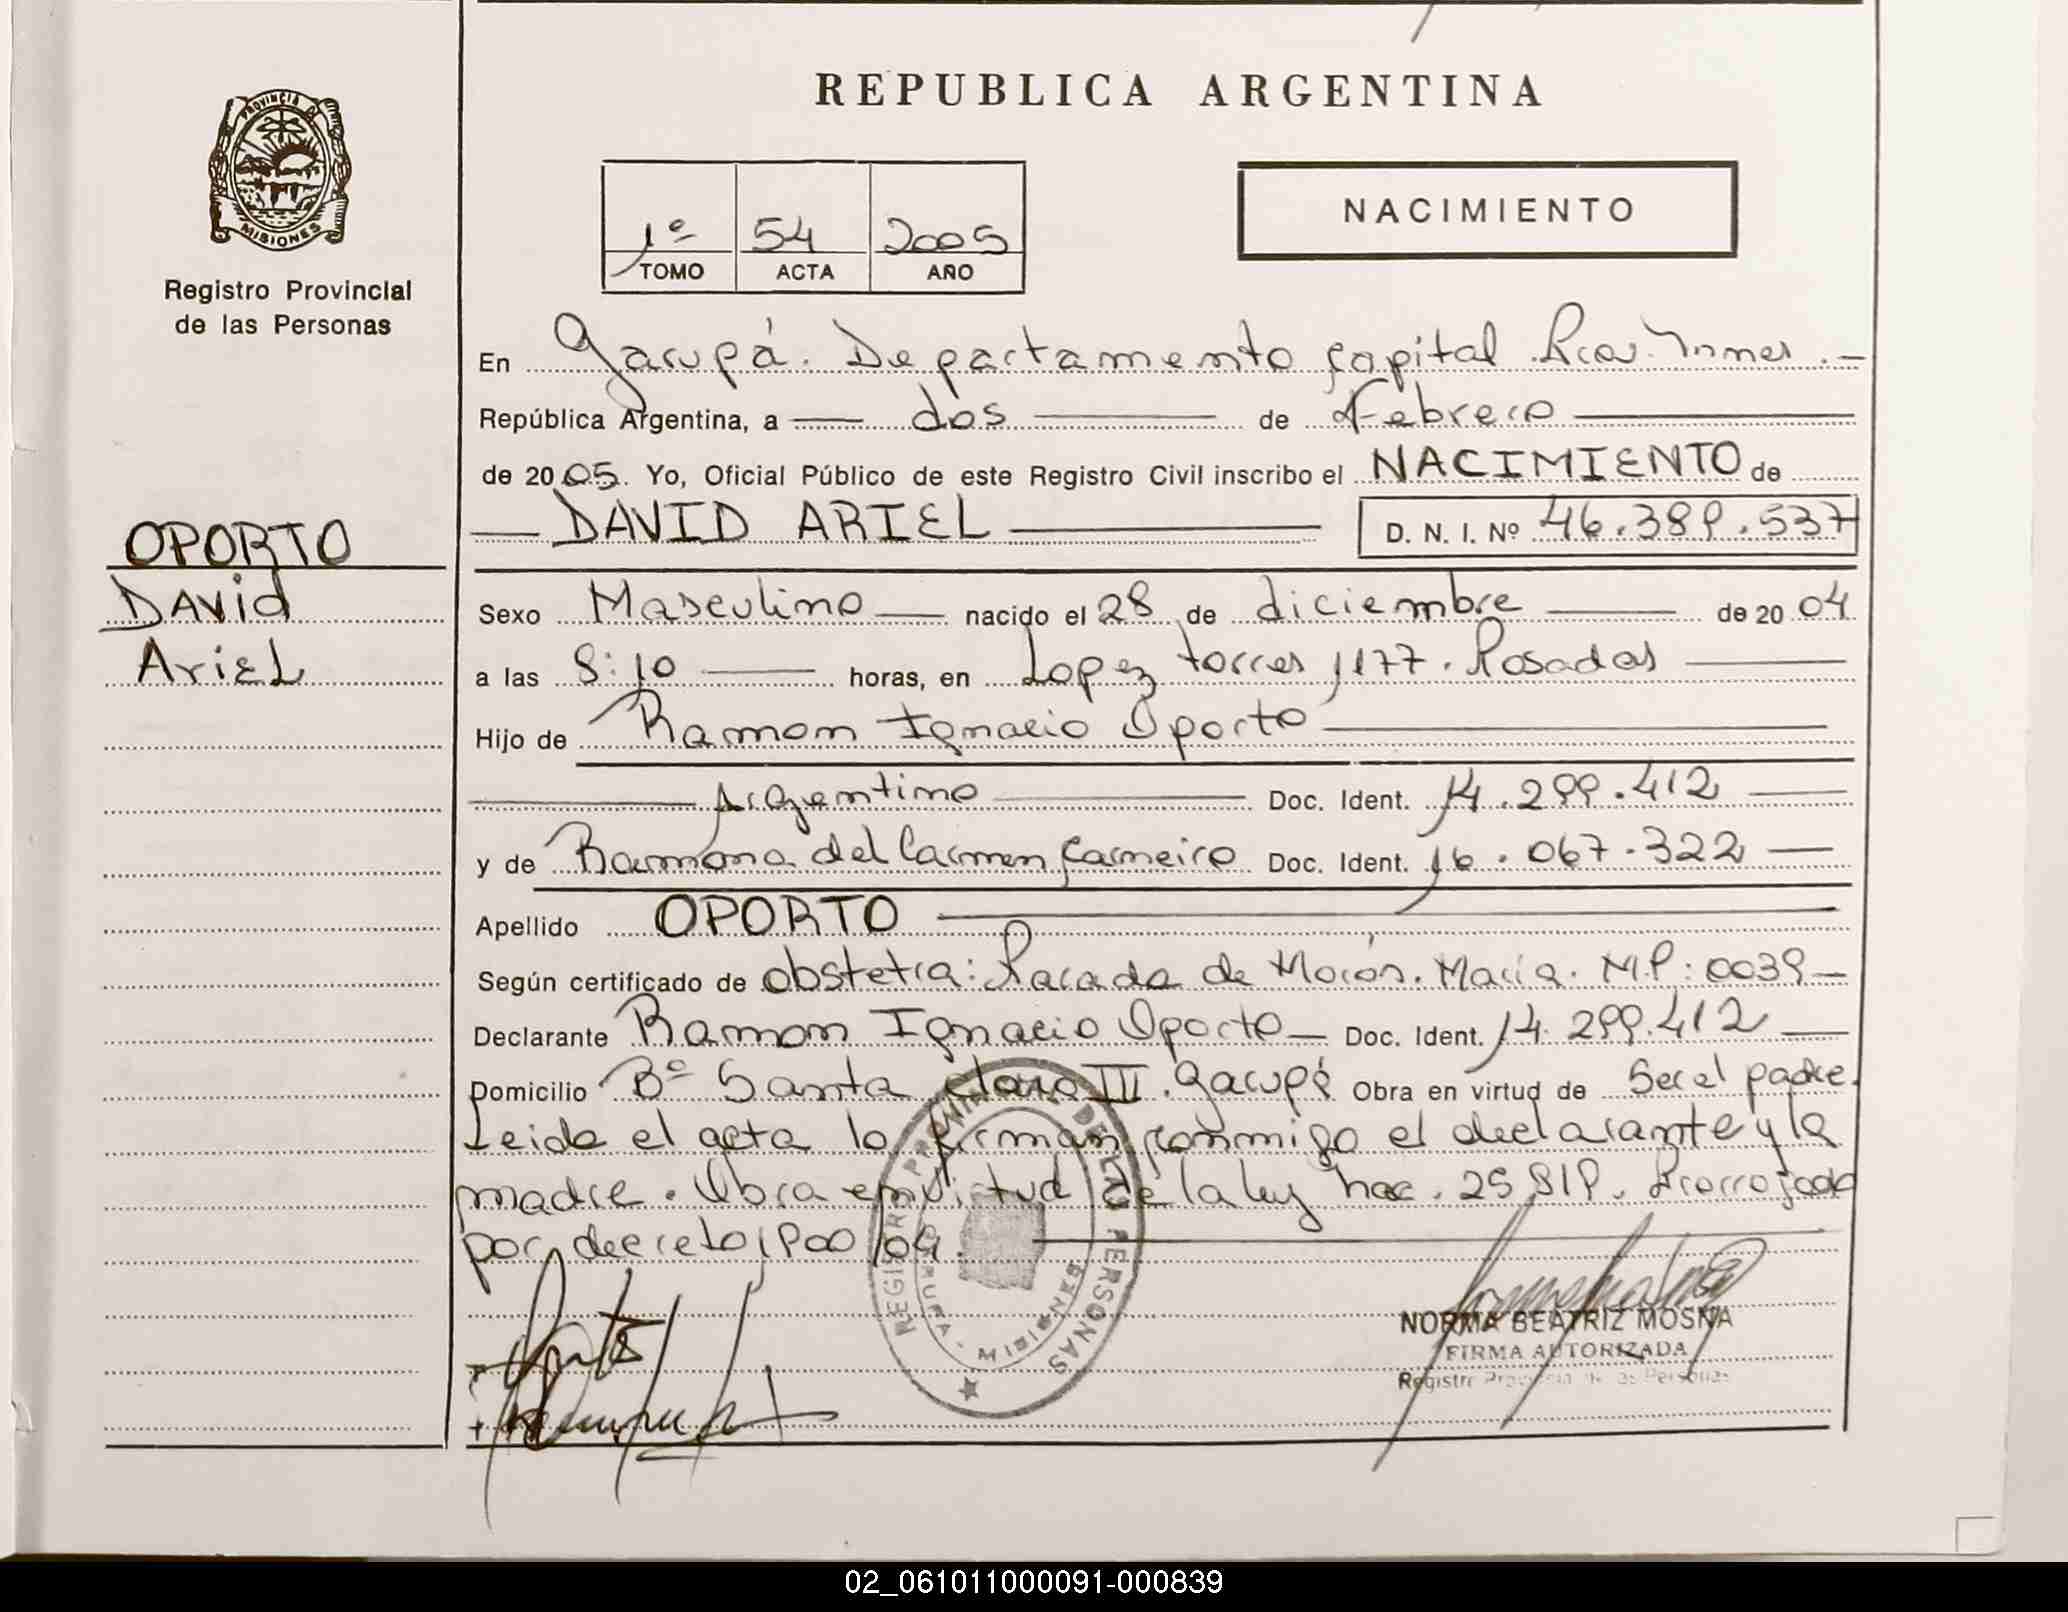 REPUBLICA ARGENTINA
PROVINCIA DE
MISIONES
Registro Provincial
de las Personas
1º 54 2005
TOMO ACTA AÑO
NACIMIENTO
En Garupá. Departamento Capital
República Argentina, a dos de Febrero
de 2005. Yo, Oficial Público de este Registro Civil inscribo el NACIMIENTO de
DAVID ARIEL D. N. I. Nº 46.389.537
OPORTO
David
Ariel
Sexo Masculino nacido el 28 de diciembre de 2004
a las 8:10 horas, en Lopez Torres 1177. Posadas
Hijo de Ramon Ignacio Oporto
Argentino Doc. Ident. 14.299.412
y de Ramona del Carmen Carneiro Doc. Ident. 16.067.322
Apellido OPORTO
Según certificado de obstetra: de Morón. María. M.P: 0039
Declarante Ramon Ignacio Oporto Doc. Ident. 14.299.412
Domicilio Bº Santa Clara III. Garupá Obra en virtud de Ser el padre.
Leida el acta lo firman conmigo el declarante y la
madre. Obra en virtud de la ley nac. 25819. Prorrogada
por decreto 1900/04.
REGISTRO PROVINCIAL DE LAS PERSONAS
GARUPA - MISIONES
NORMA BEATRIZ MOSNA
FIRMA AUTORIZADA
Registro Provincial de las Personas
02_061011000091-000839